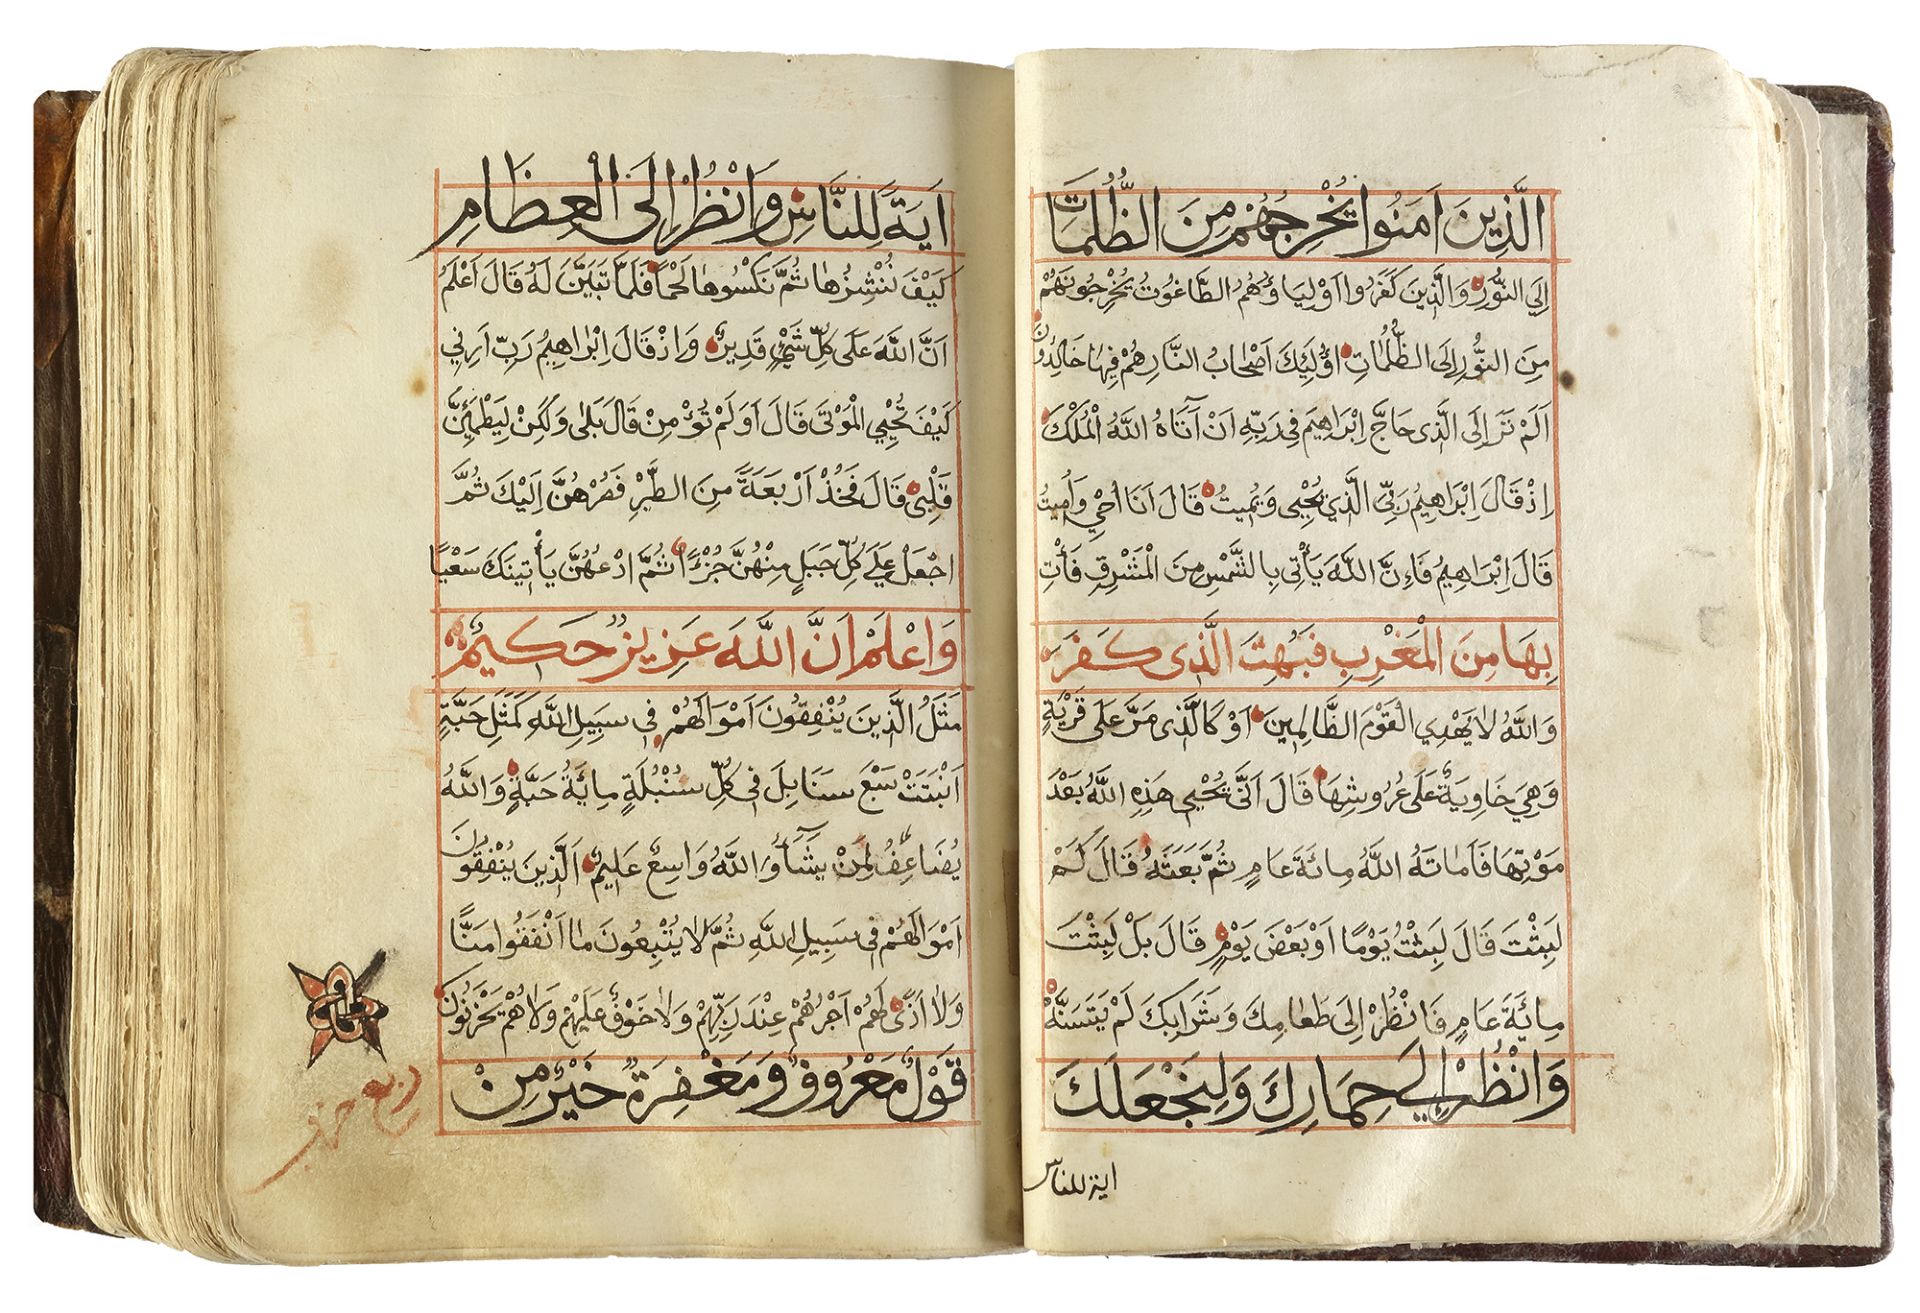 الَّذِينَ اٰمَنُوا يُخْرِجُهُمْ مِنَ الظُّلُمَاتِ
اِلَى النُّورِ وَالَّذِينَ كَفَرُوا اَوْلِيَاؤُهُمُ الطَّاغُوتُ يُخْرِجُونَهُمْ
مِنَ النُّورِ اِلَى الظُّلُمَاتِ اُولٰئِكَ اَصْحَابُ النَّارِ هُمْ فِيهَا خَالِدُونَ
اَلَمْ تَرَ اِلَى الَّذِى حَاجَّ اِبْرَاهِيمَ فِى رَبِّهِ اَنْ آتَاهُ اللَّهُ الْمُلْكَ
اِذْ قَالَ اِبْرَاهِيمُ رَبِّيَ الَّذِي يُحْيِى وَيُمِيتُ قَالَ اَنَا اُحْيِي وَاُمِيتُ
قَالَ اِبْرَاهِيمُ فَاِنَّ اللَّهَ يَأْتِى بِالشَّمْسِ مِنَ الْمَشْرِقِ فَأْتِ
بِهَا مِنَ الْمَغْرِبِ فَبُهِتَ الَّذِى كَفَرَ
وَاللَّهُ لَا يَهْدِي الْقَوْمَ الظَّالِمِينَ اَوْ كَالَّذِى مَرَّ عَلَى قَرْيَةٍ
وَهِيَ خَاوِيَةٌ عَلَى عُرُوشِهَا قَالَ اَنَّى يُحْيِي هَذِهِ اللَّهُ بَعْدَ
مَوْتِهَا فَاَمَاتَهُ اللَّهُ مِائَةَ عَامٍ ثُمَّ بَعَثَهُ قَالَ كَمْ
لَبِثْتَ قَالَ لَبِثْتُ يَوْمًا اَوْ بَعْضَ يَوْمٍ قَالَ بَلْ لَبِثْتَ
مِائَةَ عَامٍ فَانْظُرْ اِلَى طَعَامِكَ وَشَرَابِكَ لَمْ يَتَسَنَّهْ
وَانْظُرْ اِلَى حِمَارِكَ وَلِنَجْعَلَكَ
اية للناس
اٰيَةً لِلنَّاسِ وَانْظُرْ اِلَى الْعِظَامِ
كَيْفَ نُنْشِزُهَا ثُمَّ نَكْسُوهَا لَحْمًا فَلَمَّا تَبَيَّنَ لَهُ قَالَ اَعْلَمُ
اَنَّ اللَّهَ عَلَى كُلِّ شَيْءٍ قَدِيرٌ وَاِذْ قَالَ اِبْرَاهِيمُ رَبِّ اَرِنِي
كَيْفَ تُحْيِي الْمَوْتَى قَالَ اَوَلَمْ تُؤْمِنْ قَالَ بَلَى وَلَكِنْ لِيَطْمَئِنَّ
قَلْبِى قَالَ فَخُذْ اَرْبَعَةً مِنَ الطَّيْرِ فَصُرْهُنَّ اِلَيْكَ ثُمَّ
اجْعَلْ عَلَى كُلِّ جَبَلٍ مِنْهُنَّ جُزْءًا ثُمَّ ادْعُهُنَّ يَأْتِينَكَ سَعْيًا
وَاعْلَمْ اَنَّ اللَّهَ عَزِيزٌ حَكِيمٌ
مَثَلُ الَّذِينَ يُنْفِقُونَ اَمْوَالَهُمْ فِى سَبِيلِ اللَّهِ كَمَثَلِ حَبَّةٍ
اَنْبَتَتْ سَبْعَ سَنَابِلَ فِى كُلِّ سُنْبُلَةٍ مِائَةُ حَبَّةٍ وَاللَّهُ
يُضَاعِفُ لِمَنْ يَشَآءُ وَاللَّهُ وَاسِعٌ عَلِيمٌ اَلَّذِينَ يُنْفِقُونَ
اَمْوَالَهُمْ فِى سَبِيلِ اللَّهِ ثُمَّ لَا يُتْبِعُونَ مَا اَنْفَقُوا مَنًّا
وَلَا اَذًى لَهُمْ اَجْرُهُمْ عِنْدَ رَبِّهِمْ وَلَا خَوْفٌ عَلَيْهِمْ وَلَا هُمْ يَحْزَنُونَ
قَوْلٌ مَعْرُوفٌ وَمَغْفِرَةٌ خَيْرٌ مِنْ
ربع حزب